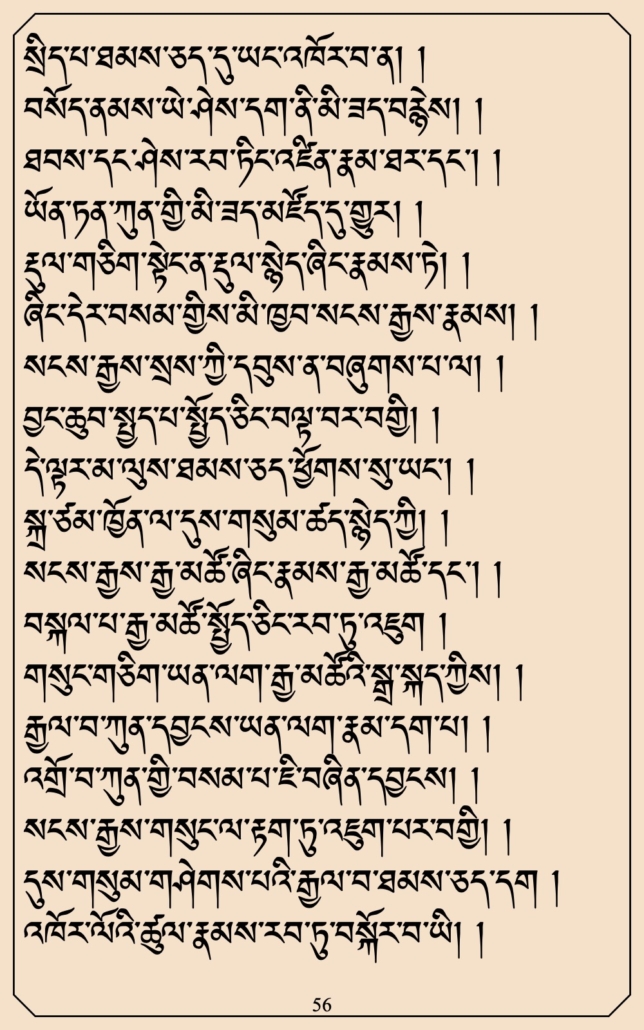 སྲིད་པ་ཐམས་ཅད་དུ་ཡང་འཁོར་བ་ན། །
བསོད་ནམས་ཡེ་ཤེས་དག་ནི་མི་ཟད་བརྙེས། །
ཐབས་དང་ཤེས་རབ་ཏིང་འཛིན་རྣམ་ཐར་དང་། །
ཡོན་ཏན་ཀུན་གྱི་མི་ཟད་མཛོད་དུ་གྱུར། །
རྡུལ་གཅིག་སྟེང་ན་རྡུལ་སྙེད་ཞིང་རྣམས་ཏེ། །
ཞིང་དེར་བསམ་གྱིས་མི་ཁྱབ་སངས་རྒྱས་རྣམས། །
སངས་རྒྱས་སྲས་ཀྱི་དབུས་ན་བཞུགས་པ་ལ། །
བྱང་ཆུབ་སྤྱད་པ་སྤྱོད་ཅིང་བལྟ་བར་བགྱི། །
དེ་ལྟར་མ་ལུས་ཐམས་ཅད་ཕྱོགས་སུ་ཡང་། །
སྐྲ་ཙམ་ཁྱོན་ལ་དུས་གསུམ་ཚད་སྙེད་ཀྱི། །
སངས་རྒྱས་རྒྱ་མཚོ་ཞིང་རྣམས་རྒྱ་མཚོ་དང་། །
བསྐལ་པ་རྒྱ་མཚོ་སྤྱོད་ཅིང་རབ་ཏུ་འཇུག །
གསུང་གཅིག་ཡན་ལག་རྒྱ་མཚོའི་སྒྲ་སྐད་ཀྱིས། །
རྒྱལ་བ་ཀུན་དབྱངས་ཡན་ལག་རྣམ་དག་པ། །
འགྲོ་བ་ཀུན་གྱི་བསམ་པ་ཇི་བཞིན་དབྱངས། །
སངས་རྒྱས་གསུང་ལ་རྟག་ཏུ་འཇུག་པར་བགྱི། །
དུས་གསུམ་གཤེགས་པའི་རྒྱལ་བ་ཐམས་ཅད་དག །
འཁོར་ལོའི་ཚུལ་རྣམས་རབ་ཏུ་བསྐོར་བ་ཡི། །
56